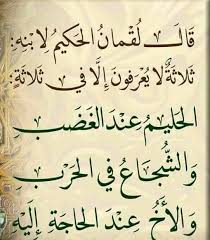 قَالَ لُقْمَانُ الْحَكِيمُ لِابْنِهِ:
ثَلَاثَةٌ لَا يُعْرَفُونَ إِلَّا فِي ثَلَاثَةٍ:
الْحَلِيمُ عِنْدَ الْغَضَبِ
وَالشُّجَاعُ فِي الْحَرْبِ
وَالْأَخُ عِنْدَ الْحَاجَةِ إِلَيْهِ